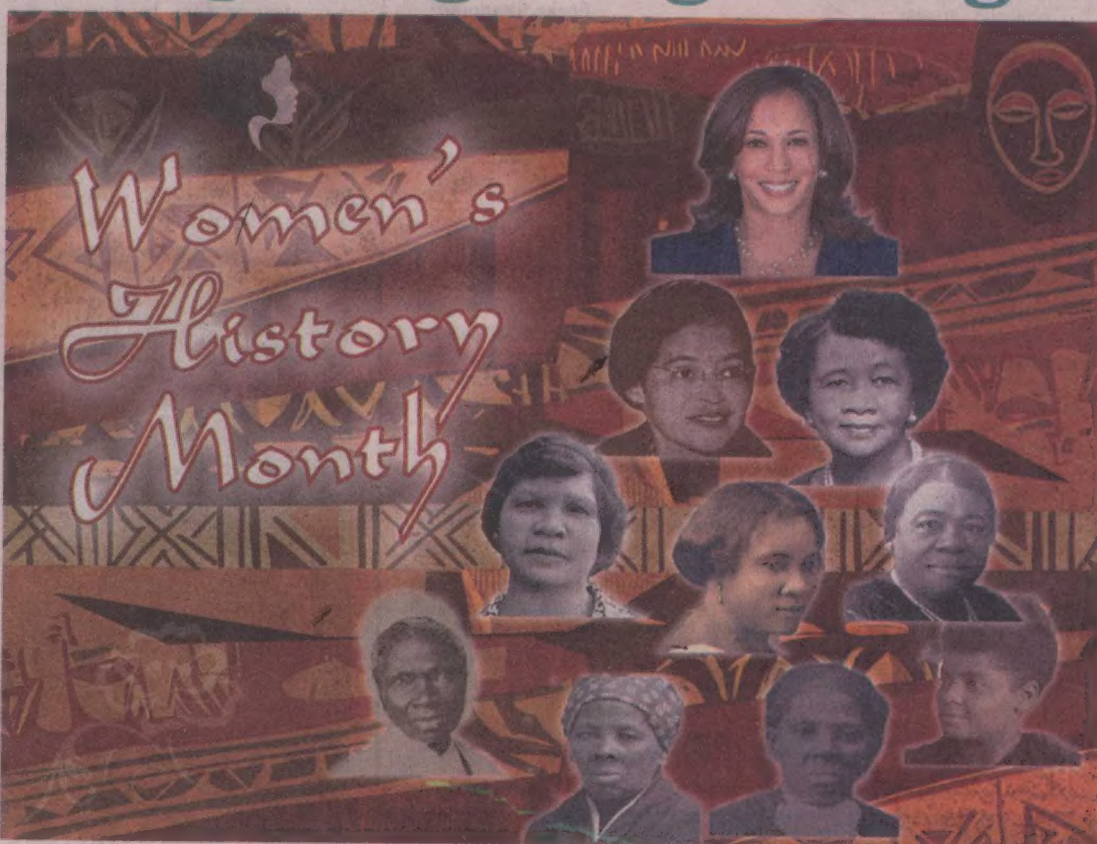 Women's
History
Month